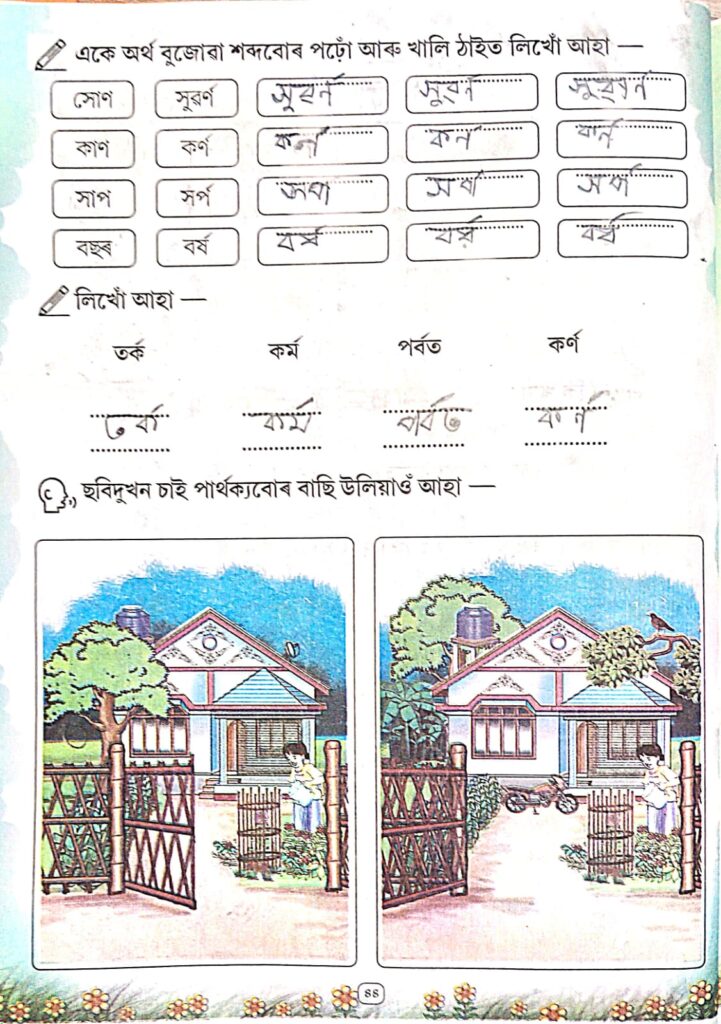 একে অৰ্থ বুজোৱা শব্দবোৰ পঢ়োঁ আৰু খালি ঠাইত লিখোঁ আহা —
সোণ সুৱৰ্ণ সুবৰ্ন সুবৰ্ন
কাণ কৰ্ণ কৰ্ন কৰ্ন কৰ্ন
সাপ সৰ্প সৰ্প
বছৰ বৰ্ষ বৰ্ষ বৰ্ষ বৰ্ষ
লিখোঁ আহা —
তৰ্ক কৰ্ম পৰ্বত কৰ্ণ
তৰ্ক কৰ্ম পৰ্বত কৰ্ন
ছবিদুখন চাই পাৰ্থক্যবোৰ বাছি উলিয়াওঁ আহা —
৪৪